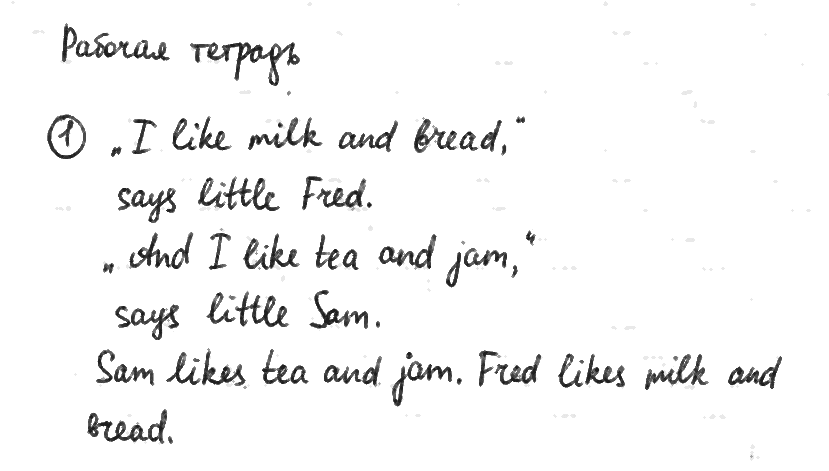 Рабочая тетрадь
① „I like milk and bread,“
says little Fred.
„And I like tea and jam,“
says little Sam.
Sam likes tea and jam. Fred likes milk and
bread.